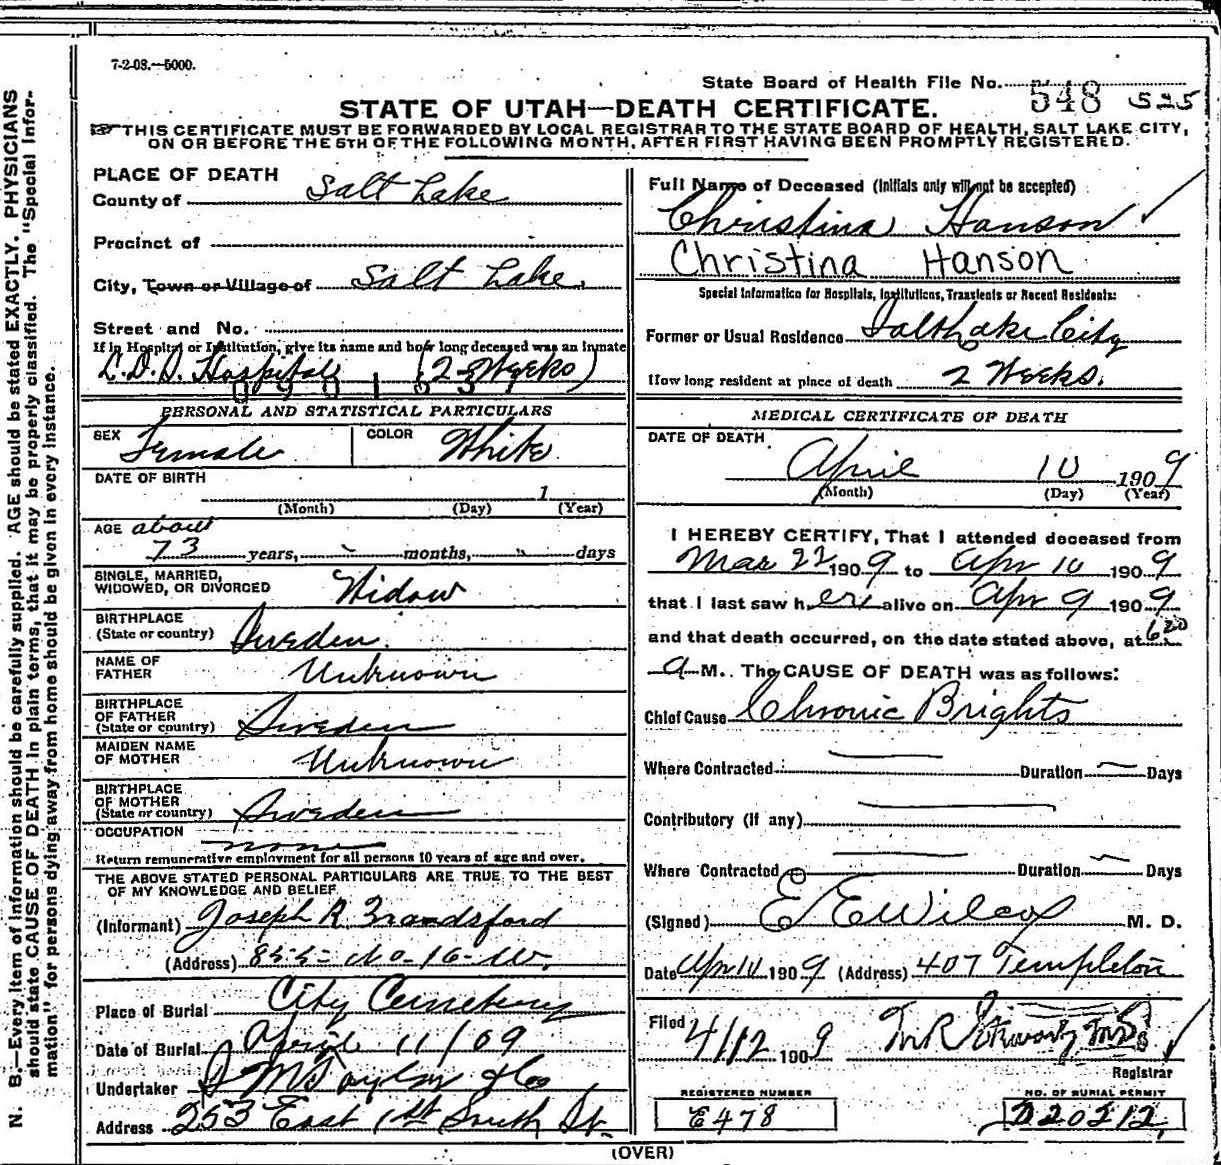 7-2-08.—5000.
State Board of Health File No. 548 525
STATE OF UTAH—DEATH CERTIFICATE.
THIS CERTIFICATE MUST BE FORWARDED BY LOCAL REGISTRAR TO THE STATE BOARD OF HEALTH, SALT LAKE CITY,
ON OR BEFORE THE 5TH OF THE FOLLOWING MONTH, AFTER FIRST HAVING BEEN PROMPTLY REGISTERED.
PLACE OF DEATH
County of Salt Lake
Precinct of
City, Town or Village of Salt Lake.
Street and No.
If in Hospital or Institution, give its name and how long deceased was an inmate
L.D.S. Hospital (2 Weeks)
090163
PERSONAL AND STATISTICAL PARTICULARS
SEX Female COLOR White
DATE OF BIRTH
1
(Month) (Day) (Year)
AGE about
73 years, months, days
SINGLE, MARRIED,
WIDOWED, OR DIVORCED Widow
BIRTHPLACE
(State or country) Sweden
NAME OF
FATHER Unknown
BIRTHPLACE
OF FATHER
(State or country) Sweden
MAIDEN NAME
OF MOTHER Unknown
BIRTHPLACE
OF MOTHER
(State or country) Sweden
OCCUPATION
none
Return remunerative employment for all persons 10 years of age and over.
THE ABOVE STATED PERSONAL PARTICULARS ARE TRUE TO THE BEST
OF MY KNOWLEDGE AND BELIEF
(Informant) Joseph R
(Address) No-16-W.
Place of Burial City Cemetery
Date of Burial April 11/09
Undertaker S M Taylor & Co
Address 253 East 1st South St.
Full Name of Deceased (Initials only will not be accepted)
Christina Hanson
Christina Hanson
Special Information for Hospitals, Institutions, Transients or Recent Residents:
Former or Usual Residence Salt Lake City
How long resident at place of death 2 Weeks.
MEDICAL CERTIFICATE OF DEATH
DATE OF DEATH
April 10 1909
(Month) (Day) (Year)
I HEREBY CERTIFY, That I attended deceased from
Mar 22 1909 to Apr 10 1909
that I last saw her alive on Apr 9 1909
and that death occurred, on the date stated above, at 620
a M. The CAUSE OF DEATH was as follows:
Chief Cause Chronic Brights
Where Contracted Duration Days
Contributory (if any)
Where Contracted Duration Days
(Signed) E E Wilcox M. D.
Date Apr 10 1909 (Address) 407 Templeton
Filed 4/12 1909
Registrar
REGISTERED NUMBER
E478
NO. OF BURIAL PERMIT
D20212
(OVER)
N. B.—Every item of information should be carefully supplied. AGE should be stated EXACTLY. PHYSICIANS
should state CAUSE OF DEATH in plain terms, that it may be properly classified. The "Special Infor-
mation" for persons dying away from home should be given in every instance.